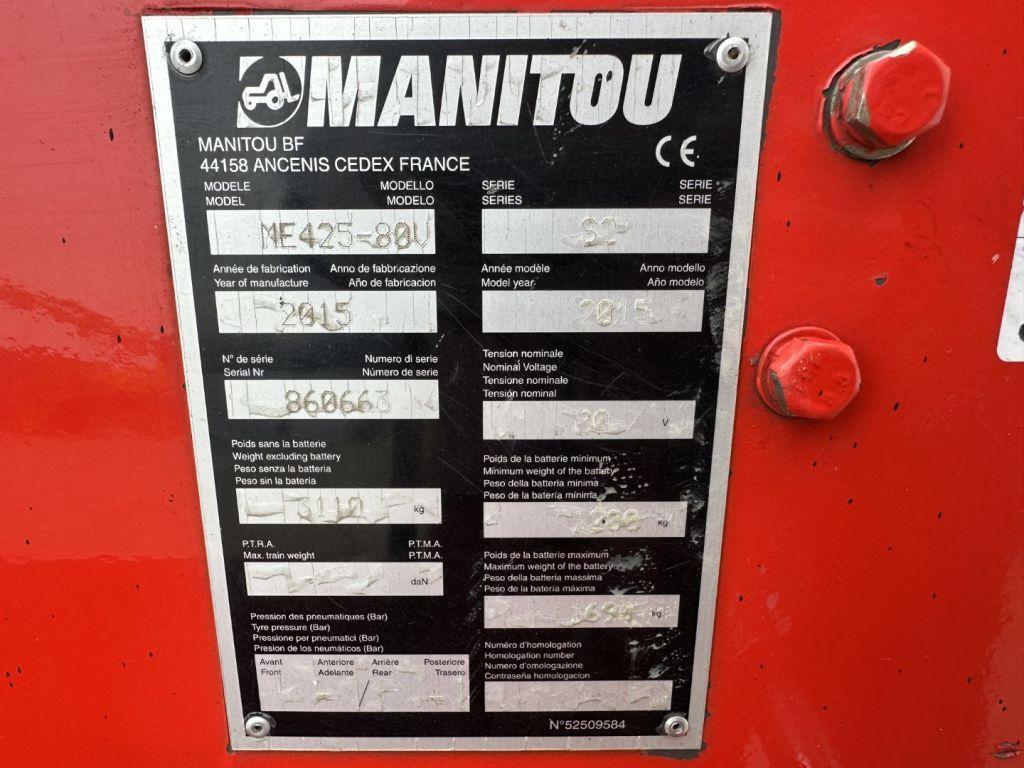 MANITOU
MANITOU BF
44158 ANCENIS CEDEX FRANCE
CE
MODELE MODELLO
MODEL MODELO
ME425-80V
SERIE SERIE
SERIES SERIE
S2
Année de fabrication Anno de fabbricazione
Year of manufacture Año de fabricacion
2015
Année modèle Anno modello
Model year Año modelo
2015
N° de série Numero di serie
Serial Nr Número de serie
860663
Tension nominale
Nominal Voltage
Tensione nominale
Tensión nominal
V
Poids sans la batterie
Weight excluding battery
Peso senza la batteria
Peso sin la bateria
3110 kg
Poids de la batterie minimum
Minimum weight of the battety
Peso della batteria minima
Peso de la batería mínima
1200 kg
P.T.R.A. P.T.M.A.
Max. train weight P.T.M.A.
daN
Poids de la batterie maximum
Maximum weight of the battery
Peso della batteria massima
Peso de la batería máxima
1690 kg
Pression des pneumatiques (Bar)
Tyre pressure (Bar)
Pressione per pneumatici (Bar)
Presion de los neumàticos (Bar)
Avant Anteriore Arrière Posteriore
Front Adelante Rear Trasero
- - / - -
Numéro d'homologation
Homologation number
Numero d'omologazione
Contraseña homologacion
N°52509584